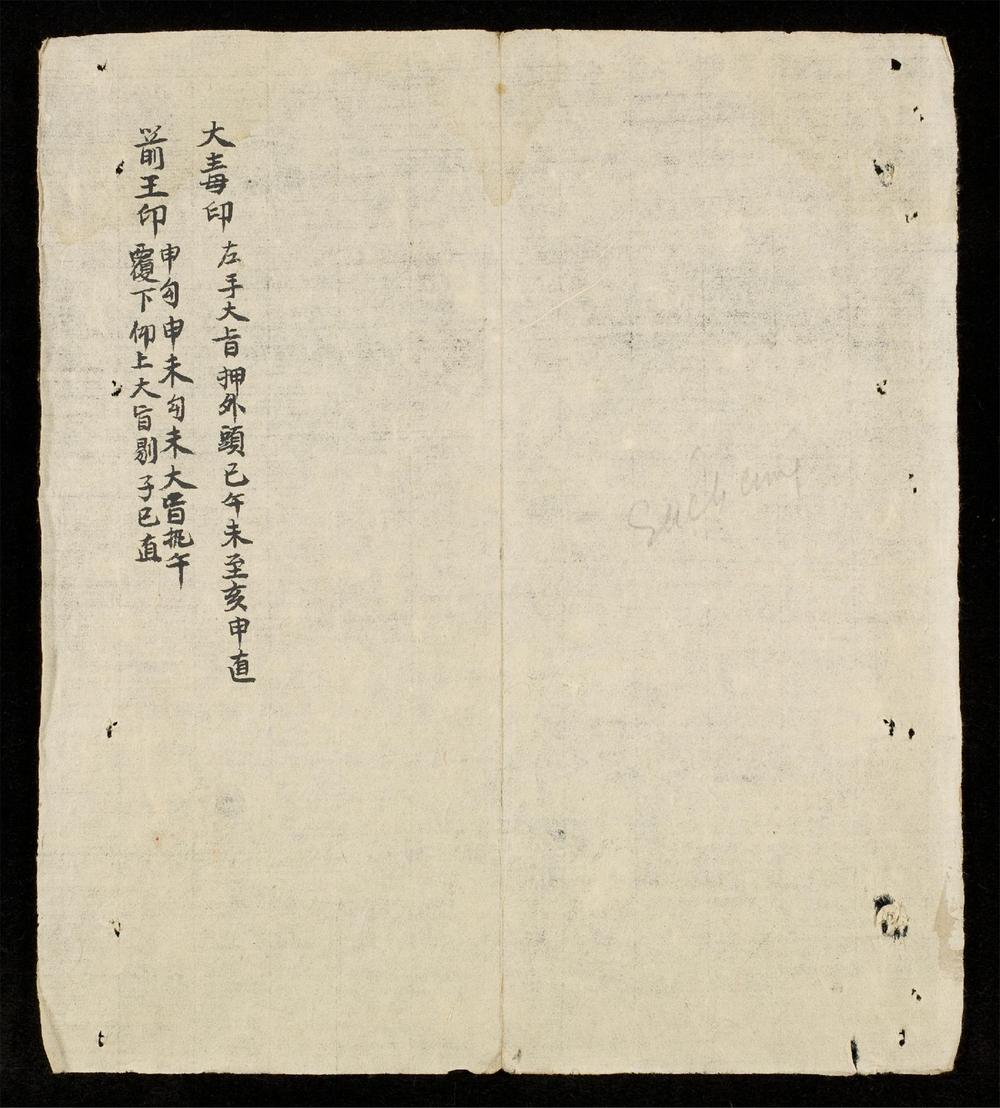 大毒印 左手大旨押外頭巳午未至亥申直
前王印 申勾申未勾未大旨挑午
覆下仰上大旨剔子巳直